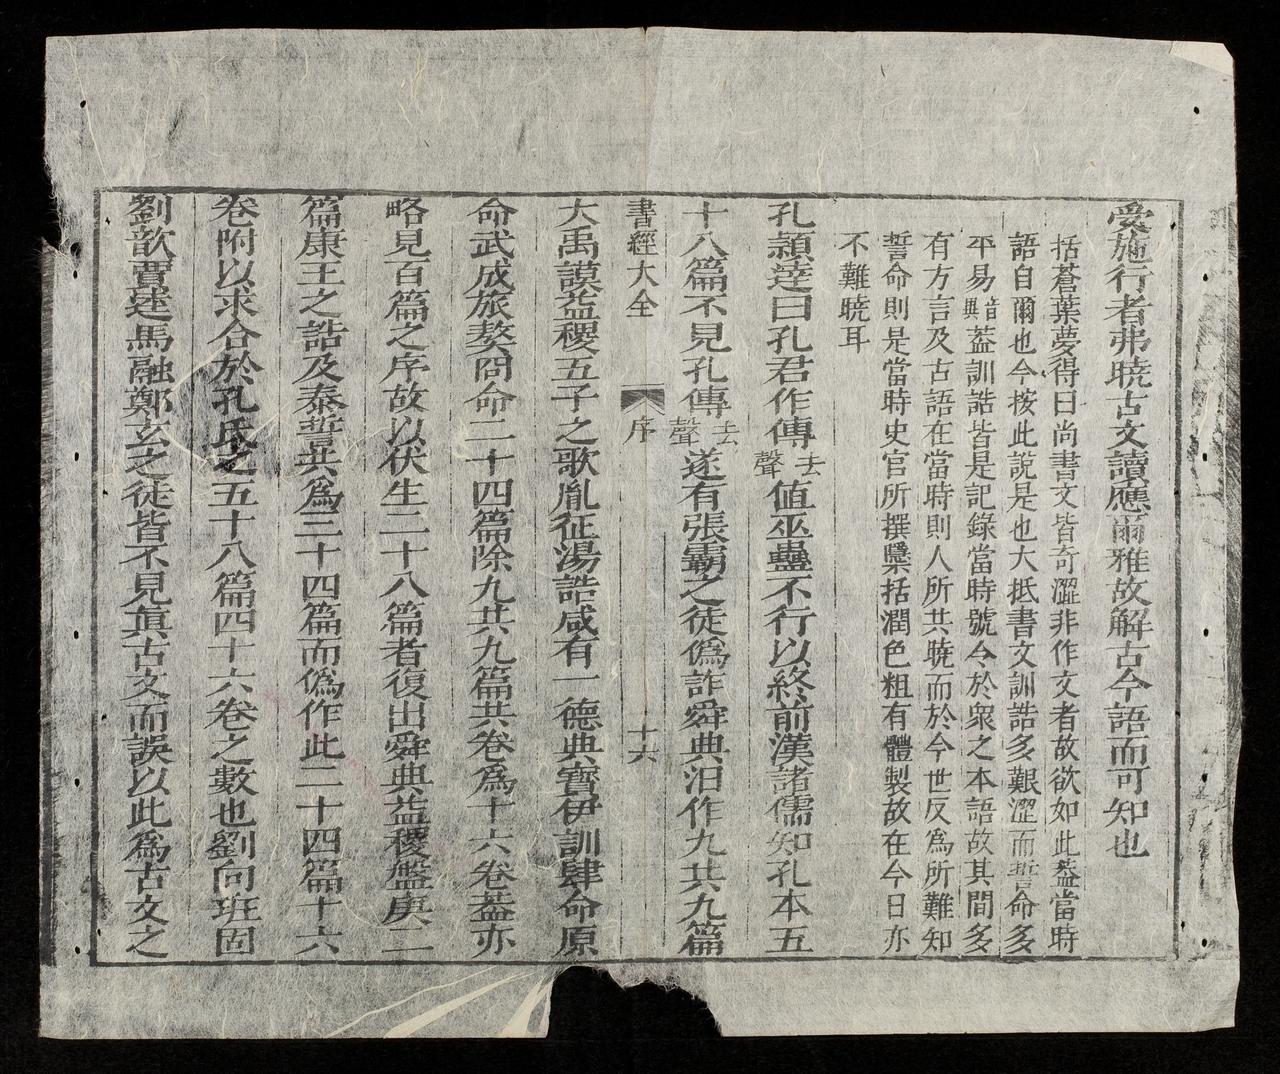 受施行者弗曉古文讀應爾雅故解古今語而可知也
括蒼葉夢得曰尚書文皆奇澀非作文者故欲如此蓋當時
語自爾也今按此說是也大抵書文訓誥多艱澀而誓命多
平易音異蓋訓誥皆是記錄當時號令於衆之本語故其間多
有方言及古語在當時則人所共曉而於今世反為所難知
誓命則是當時史官所撰檃括潤色粗有體製故在今日亦
不難曉耳
孔穎達曰孔君作傳去聲值巫蠱不行以終前漢諸儒知孔本五
十八篇不見孔傳去聲遂有張霸之徒偽詐舜典汨作九共九篇
書經大全 序 十六
大禹謨益稷五子之歌胤征湯誥咸有一德典寶伊訓肆命原
命武成旅獒冏命二十四篇除九共九篇共卷為十六卷蓋亦
略見百篇之序故以伏生二十八篇者復出舜典益稷盤庚二
篇康王之誥及泰誓共為三十四篇而偽作此二十四篇十六
卷附以求合於孔氏之五十八篇四十六卷之數也劉向班固
劉歆賈逵馬融鄭玄之徒皆不見真古文而誤以此為古文之